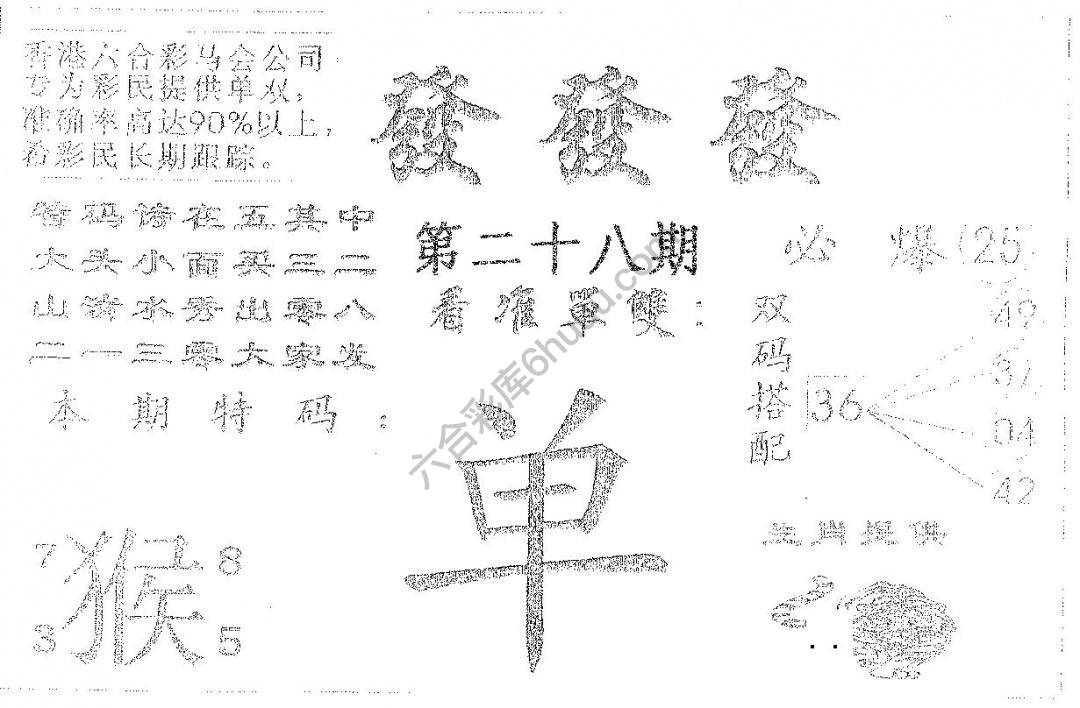 香港六合彩马会公司
专为彩民提供单双,
准确率高达90%以上,
希彩民长期跟踪。
發 發 發
特码诗在五其中
大头小面买三二
山清水秀出零八
二一三零大家发
本期特码:
第二十八期
看准單雙:
单
必爆(25)
双码搭配
36
49
37
04
42
7 猴 8
3 5
生肖提供
六合彩库6huqu.com